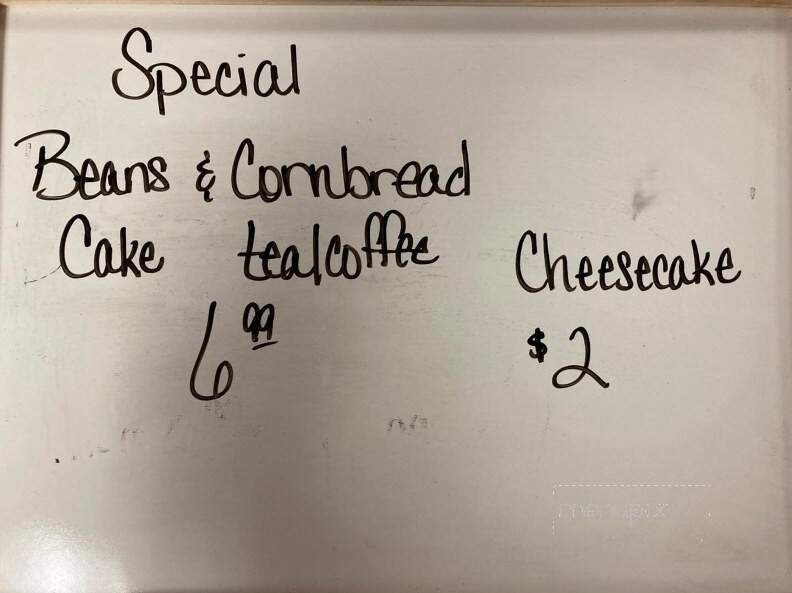 Special
Beans & Cornbread
Cake tea/coffee
6.99
Cheesecake
$2